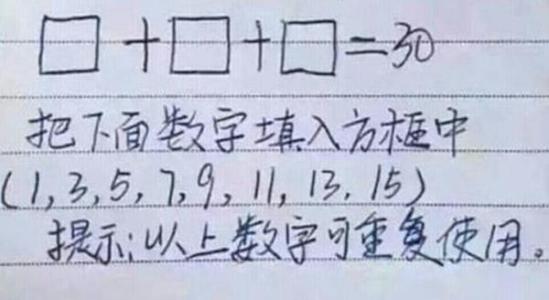 □+□+□=30
把下面数字填入方框中
(1,3,5,7,9,11,13,15)
提示:以上数字可重复使用。